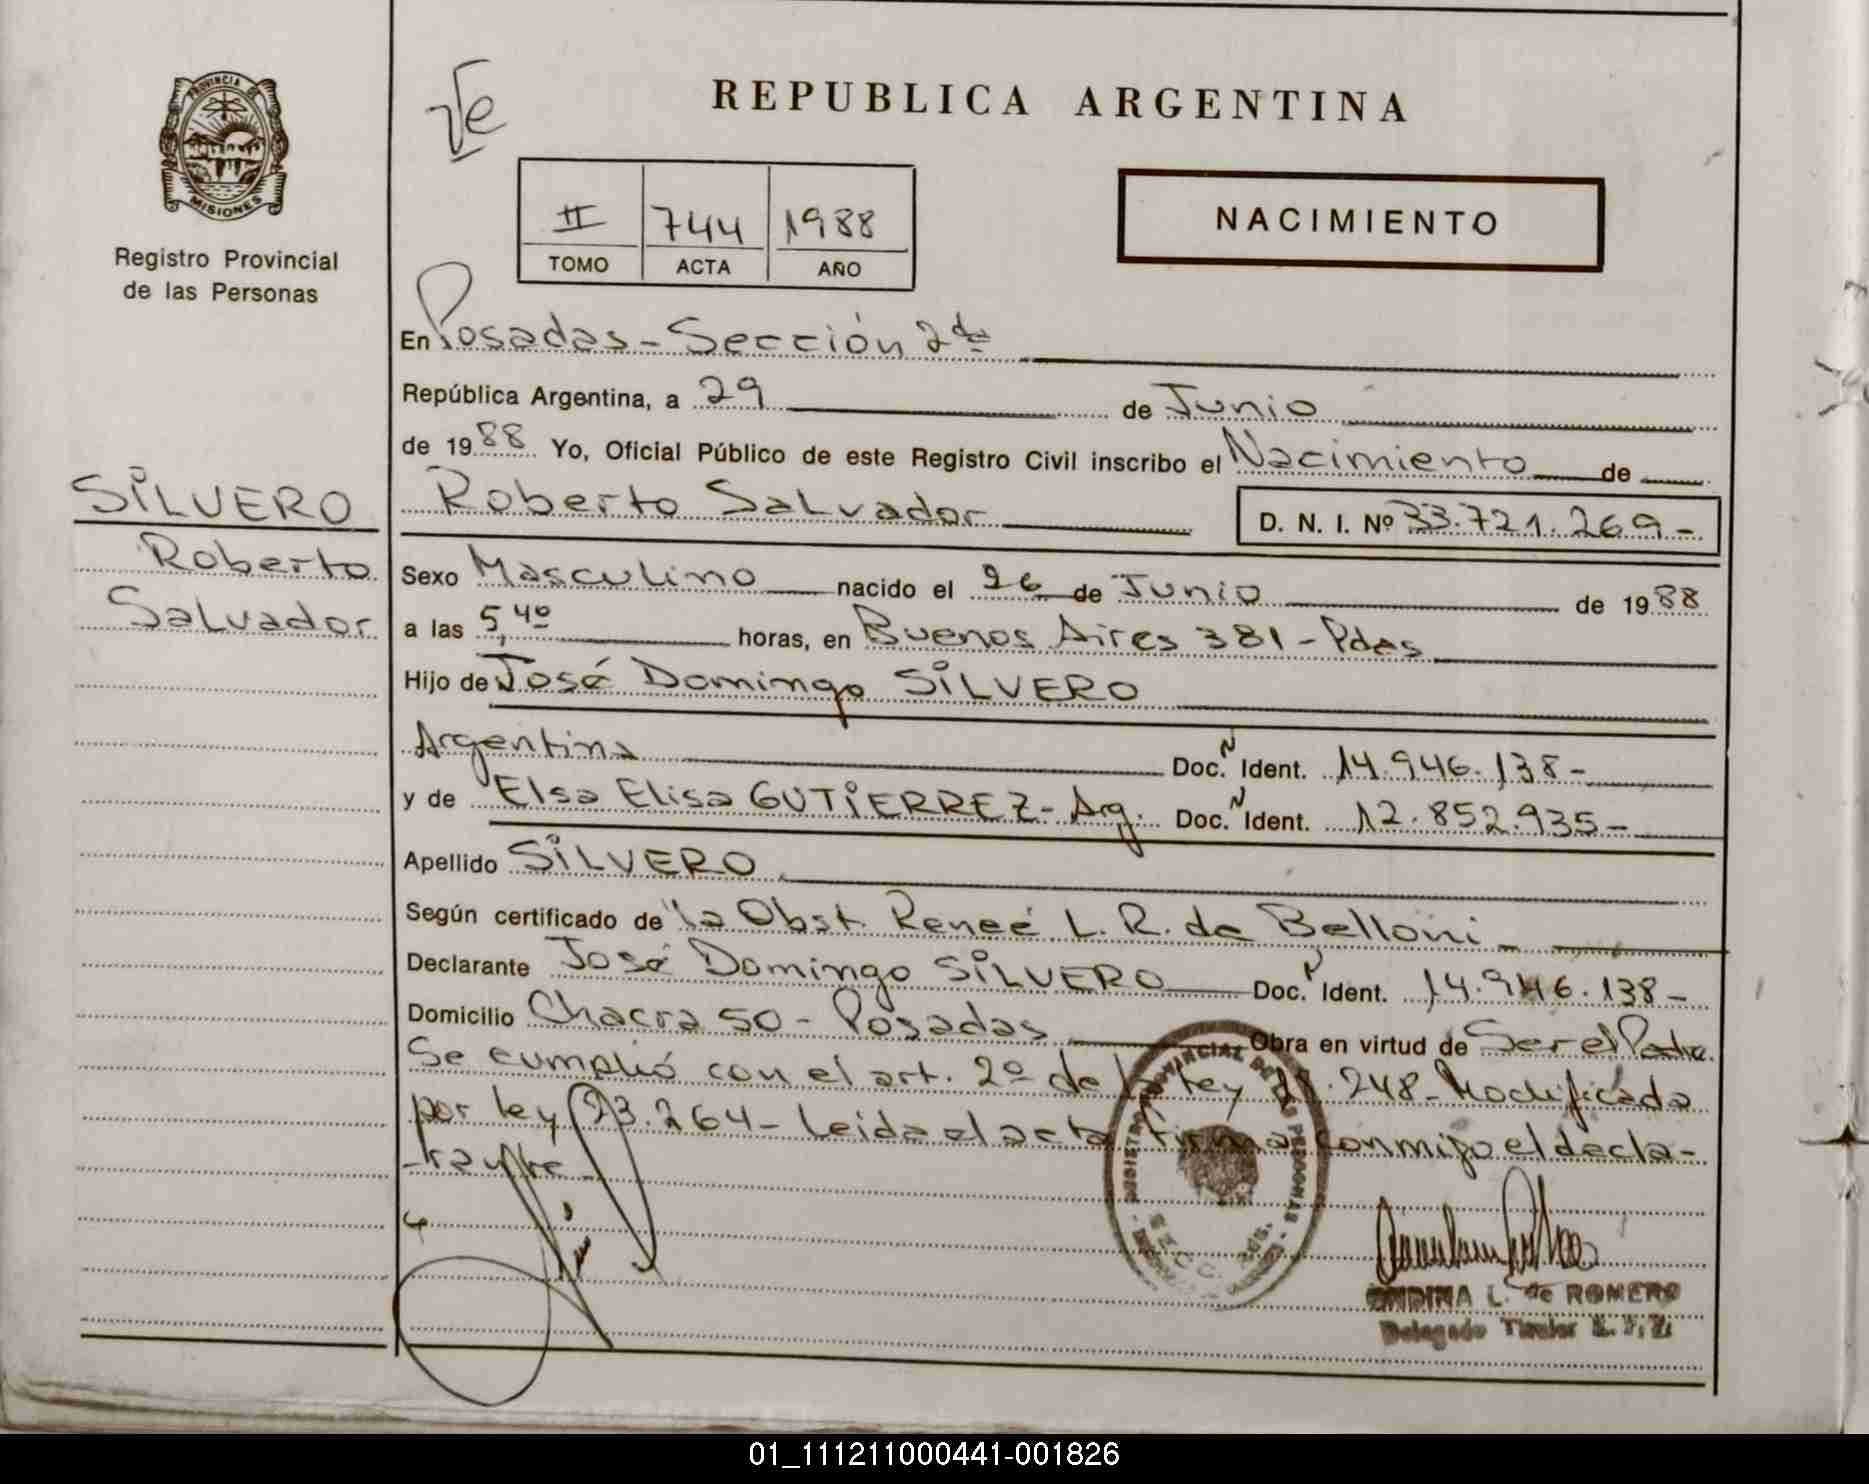 PROVINCIA DE
MISIONES
Registro Provincial
de las Personas
REPUBLICA ARGENTINA
II 744 1988
TOMO ACTA AÑO
NACIMIENTO
En Posadas - Sección 2da
República Argentina, a 29 de Junio
de 1988 Yo, Oficial Público de este Registro Civil inscribo el Nacimiento de
SILVERO
Roberto
Salvador
Roberto Salvador D. N. I. Nº 33.721.269-
Sexo Masculino nacido el 26 de Junio de 1988
a las 5,40 horas, en Buenos Aires 381 - Pdas
Hijo de José Domingo SILVERO
Argentina Doc. Ident. 14.946.138-
y de Elsa Elisa GUTIERREZ - Arg. Doc. Ident. 12.852.935-
Apellido SILVERO
Según certificado de la Obst. Reneé L. R. de Belloni
Declarante José Domingo SILVERO Doc. Ident. 14.946.138-
Domicilio Chacra 50 - Posadas Obra en virtud de Ser el Padre
Se cumplió con el art. 2º de la ley .248 - Modificada
por ley 23.264 - Leida el acta firma conmigo el decla-
rante
L. de ROMERO
Delegado Titular
01_111211000441-001826